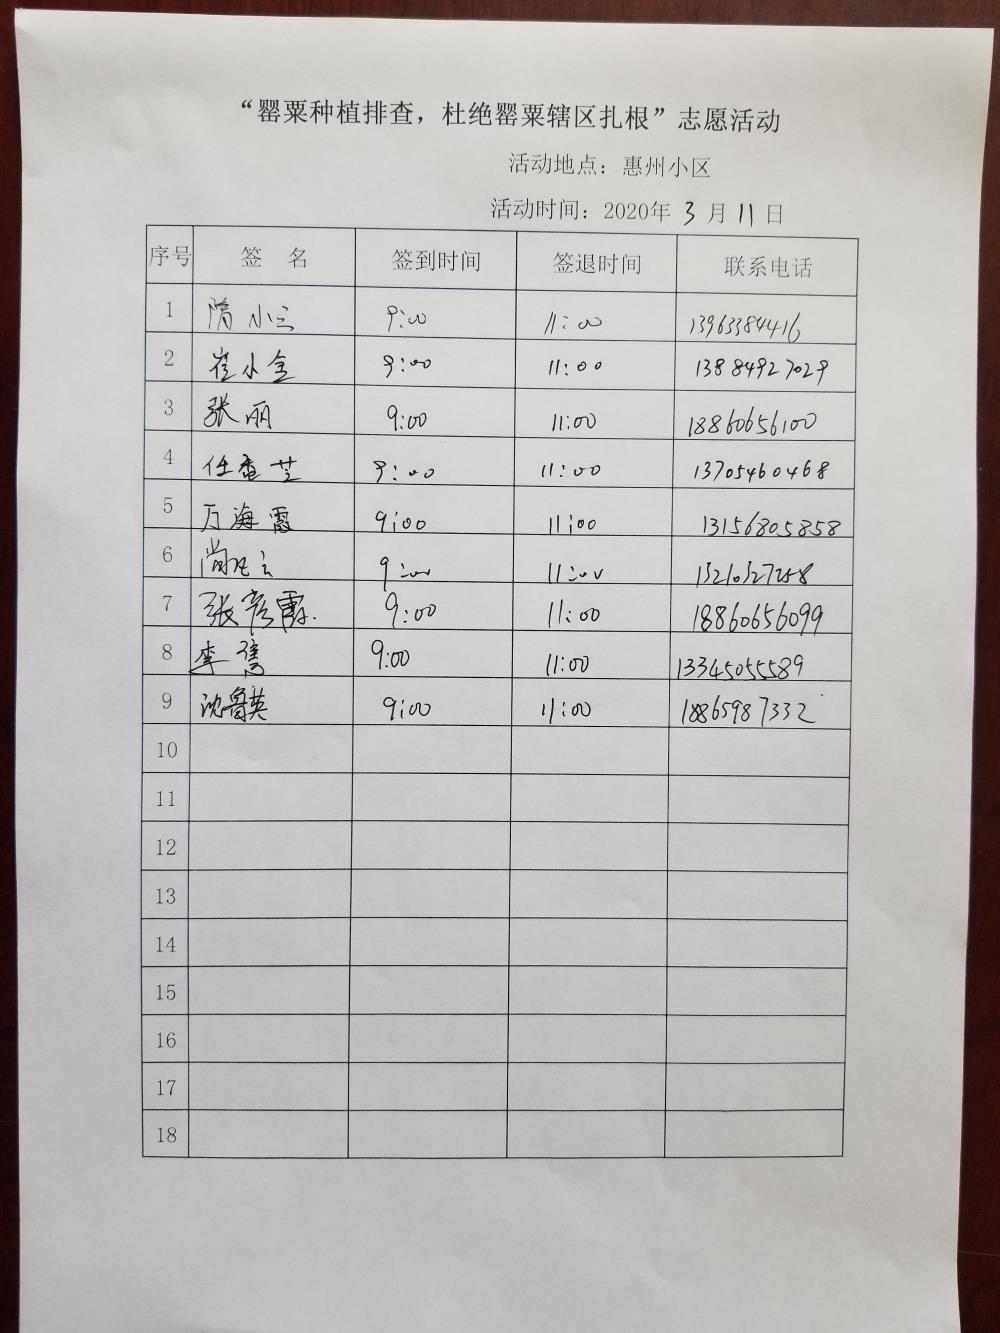 “罂粟种植排查，杜绝罂粟辖区扎根”志愿活动
活动地点：惠州小区
活动时间：2020年 3 月 11 日
序号 签 名 签到时间 签退时间 联系电话
1 隋小三 9:00 11:00 13963384416
2 崔小金 9:00 11:00 13884927029
3 张丽 9:00 11:00 18860656100
4 任香芝 9:00 11:00 13705460468
5 万海霞 9:00 11:00 13156805858
6 尚 9:00 11:00 13210327258
7 张彦霞 9:00 11:00 18860656099
8 李 9:00 11:00 13345055589
9 沈鲁英 9:00 11:00 18865987332
10
11
12
13
14
15
16
17
18